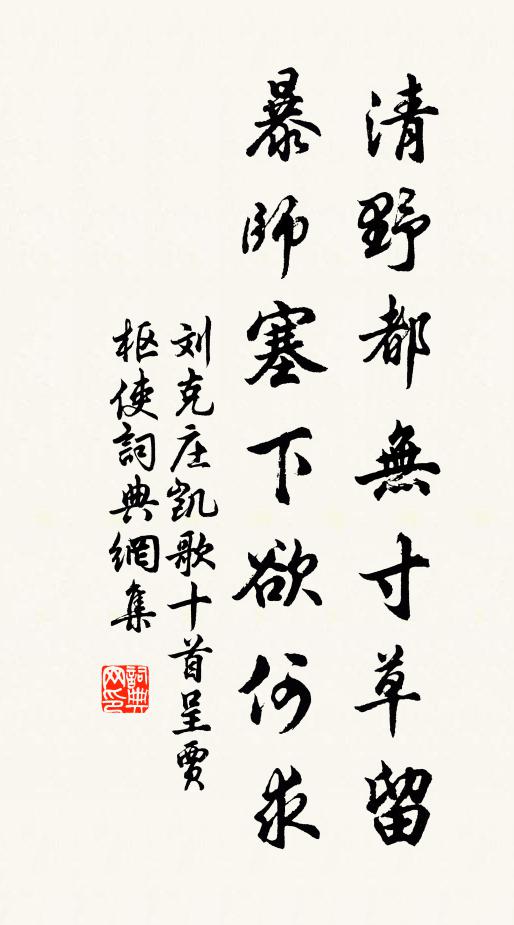 清野都無寸草留
暴師塞下欲何求
刘克庄凯歌十首呈贾
枢使詞典網集
詞典
网印